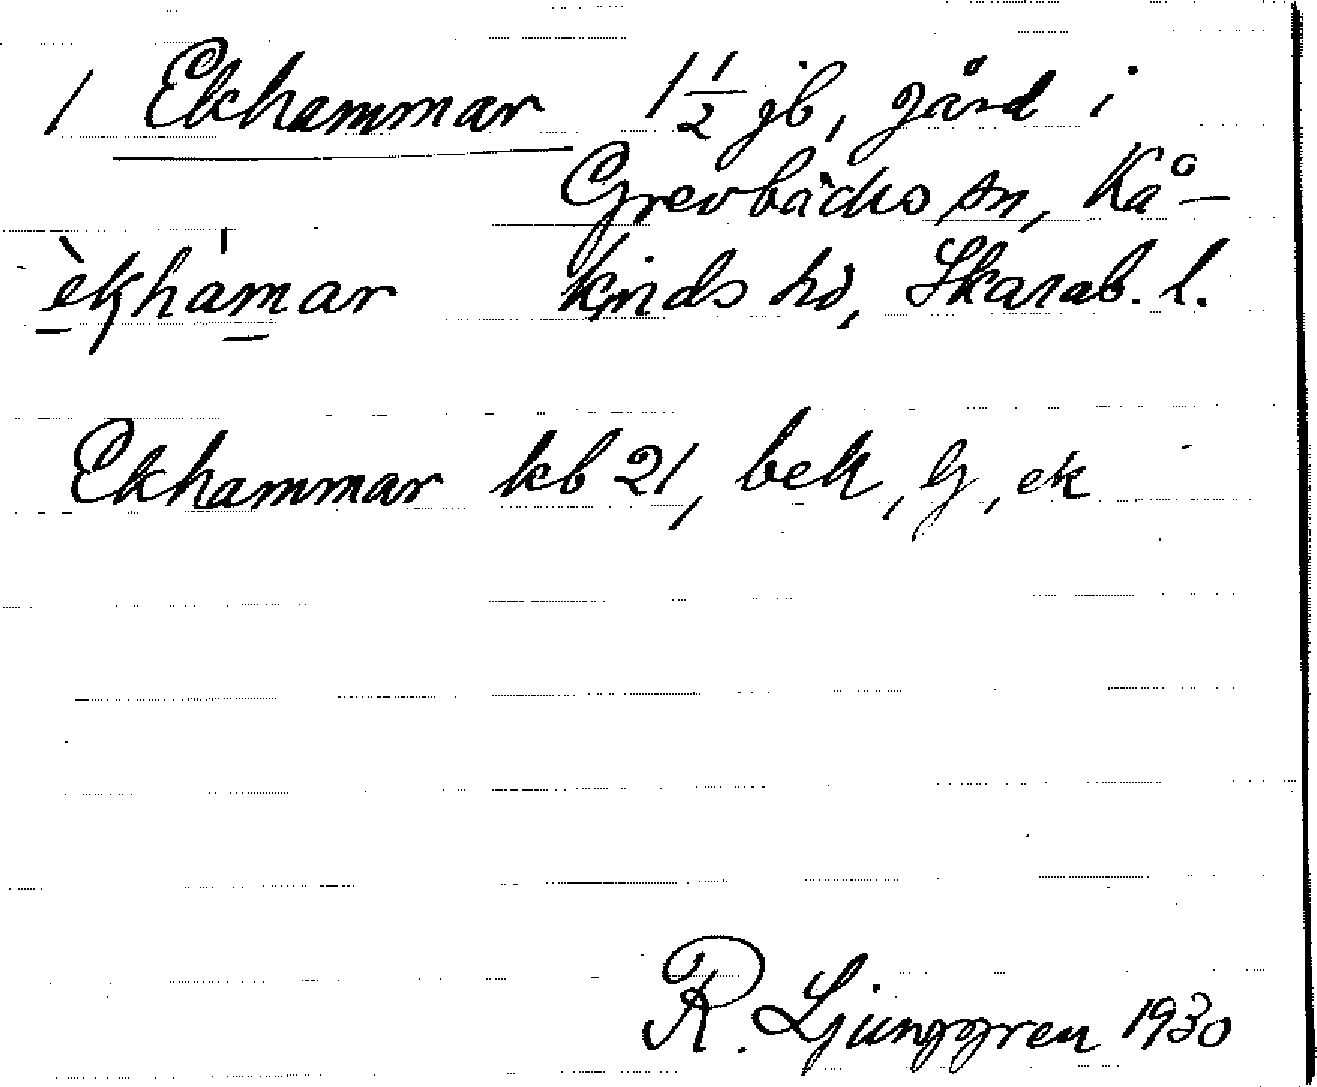 1 Ekhammar 1 1/2 jb, gård i
Grevbäcks sn, Kå-
èkhámar kinds hd, Skarab. l.
Ekhammar kb 21, bek, G, ek
R. Ljunggren 1930